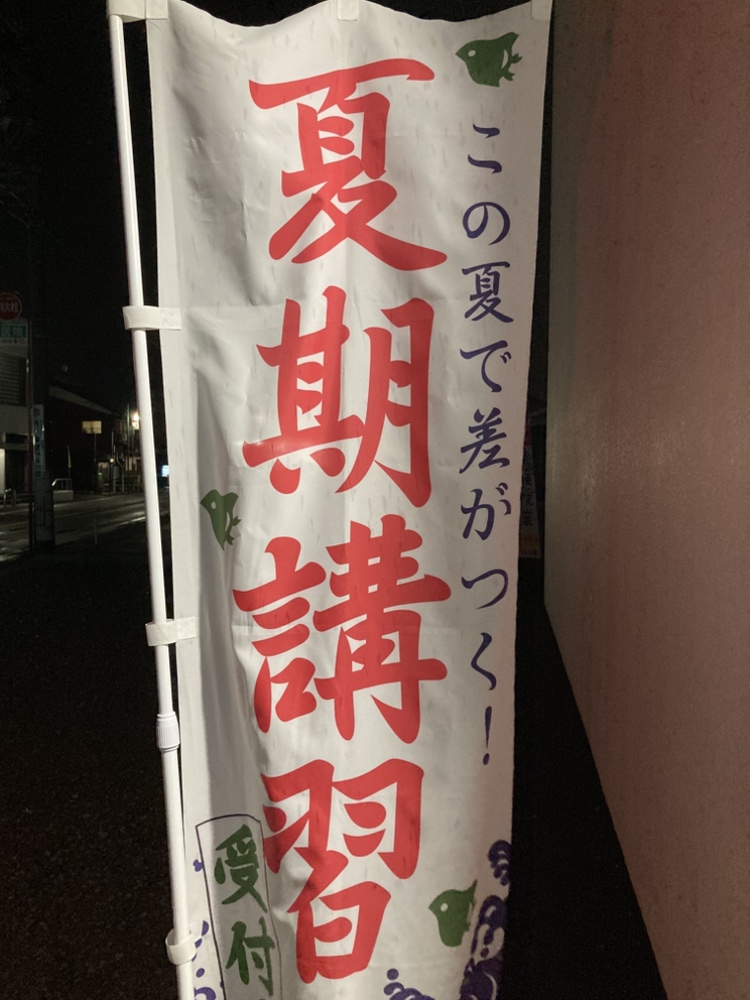 この夏で差がつく!
夏期講習
受付